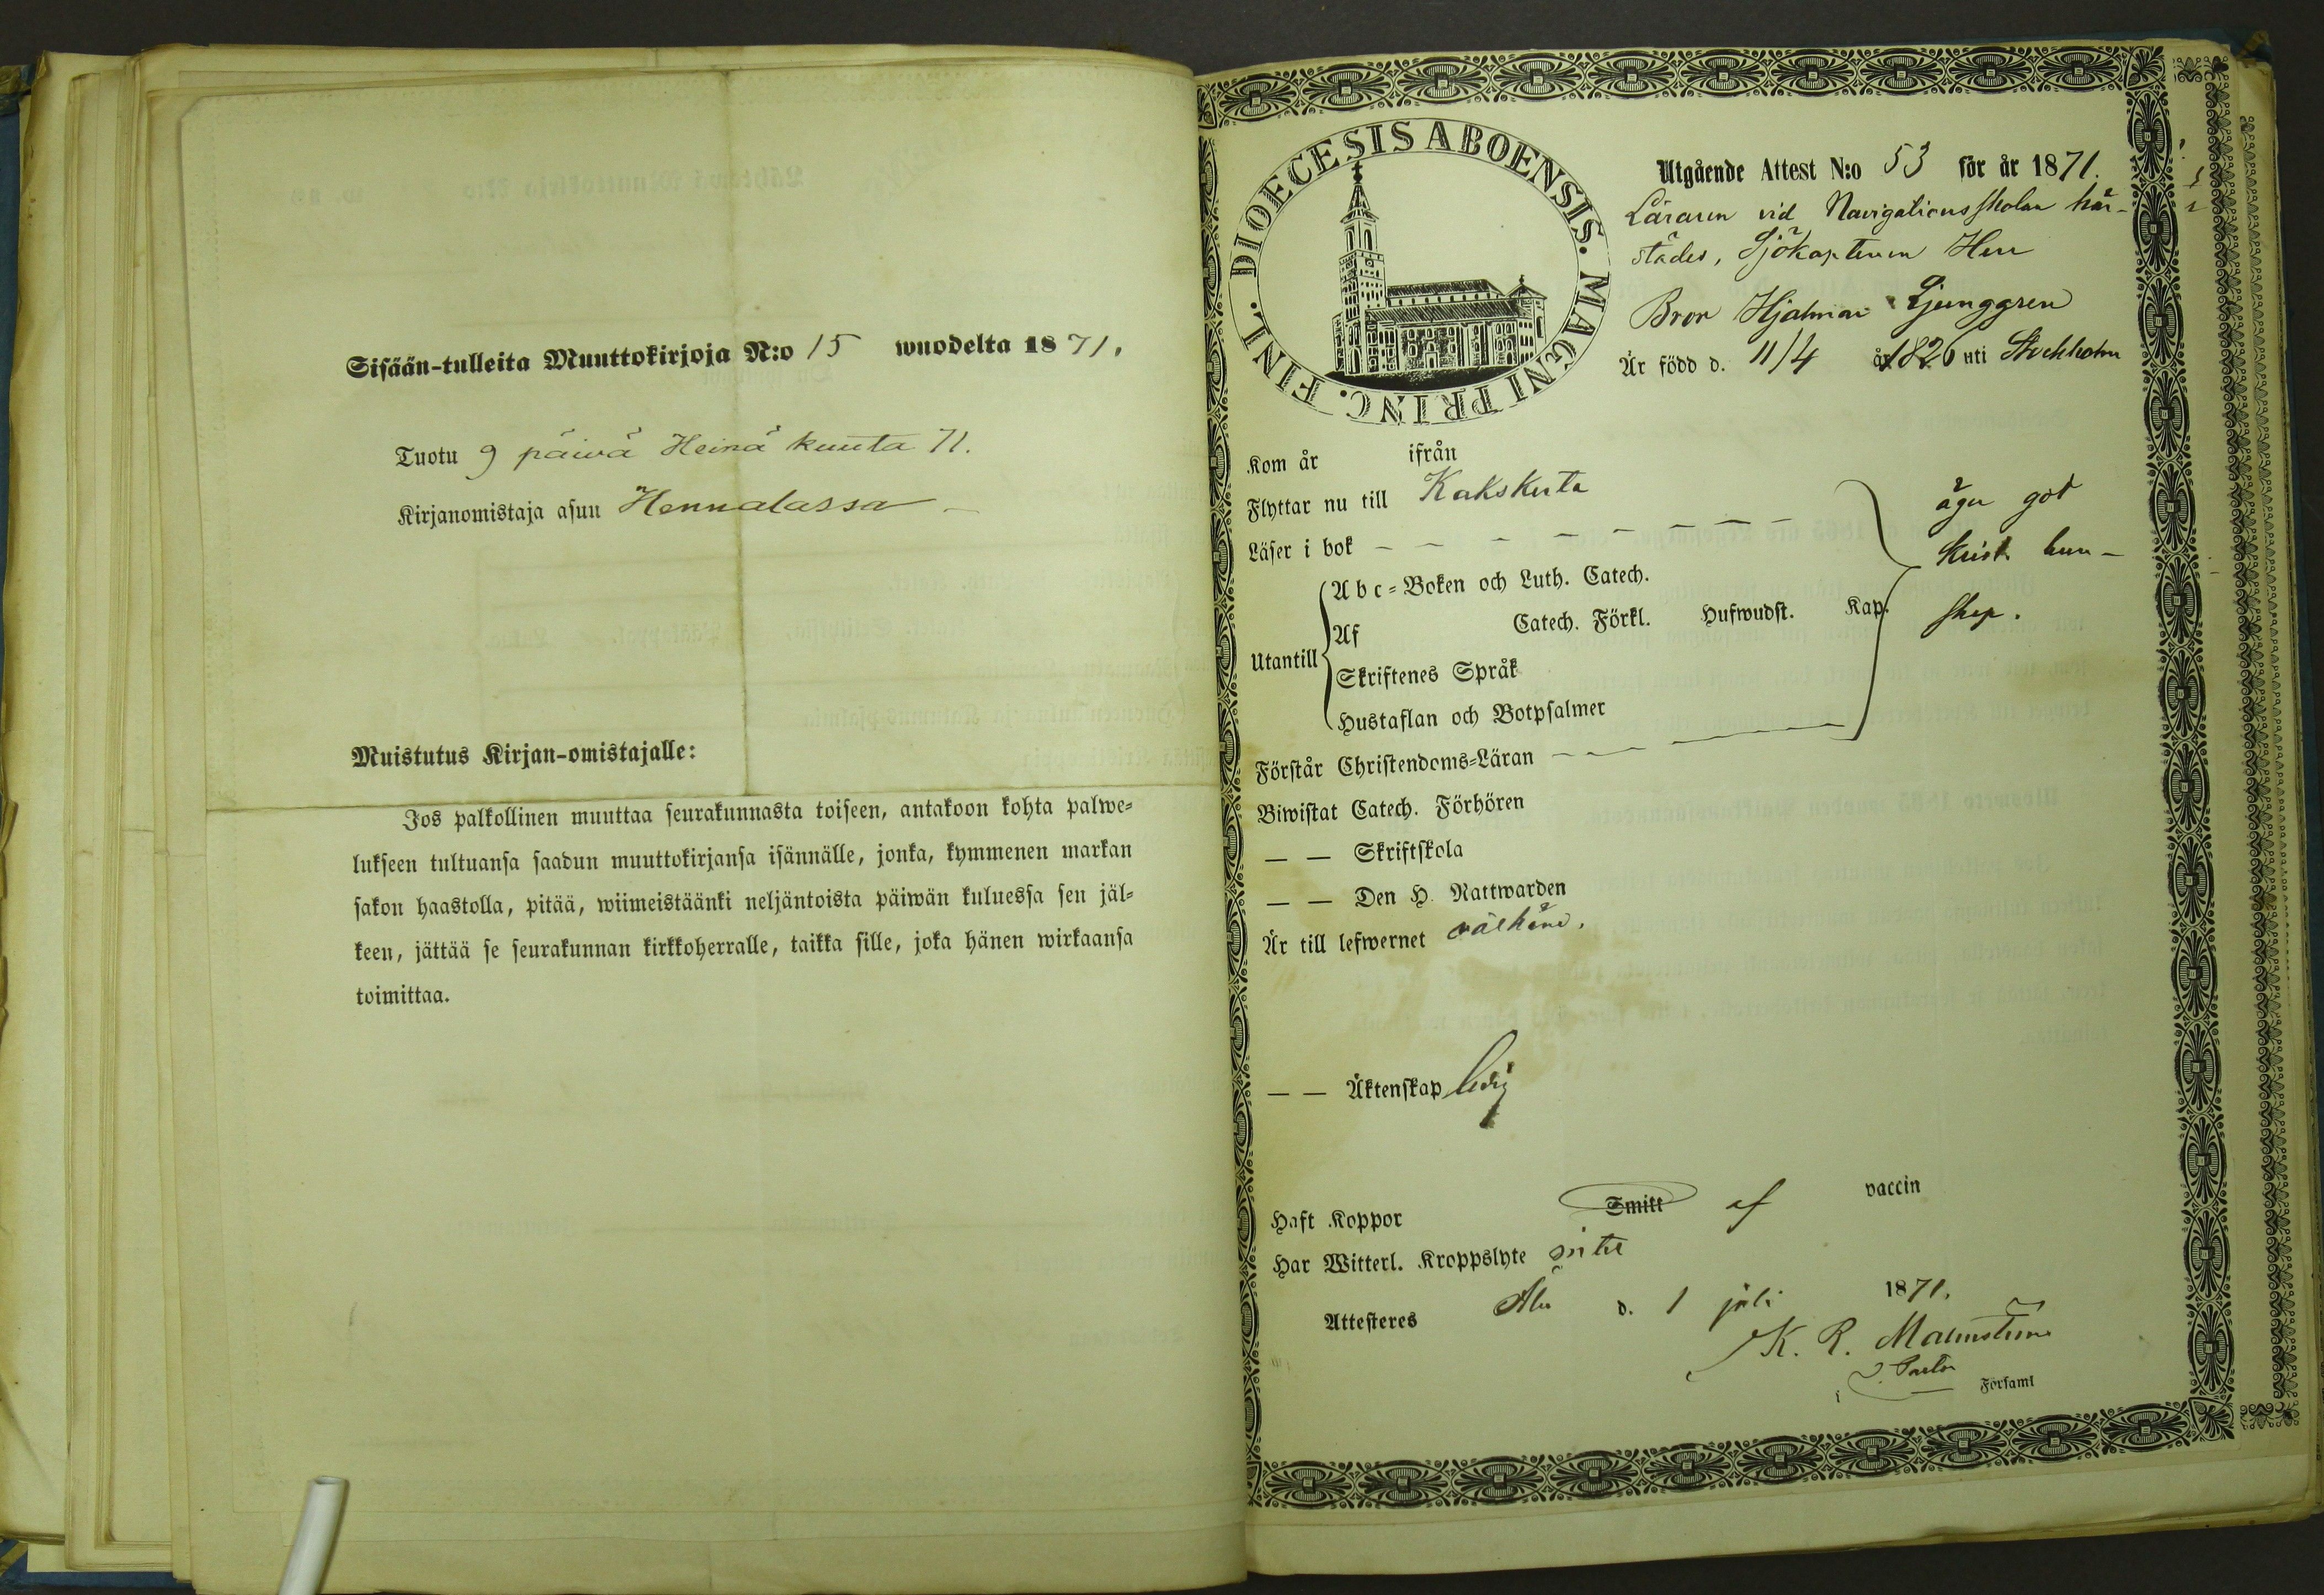 Sisään-tulleita Muuttokirjoja N:o 15 wuodelta 1871.
Tuotu 9 päivä Heinä kuuta 71.
Kirjanomistaja asuu Hennalassa
Muistutus Kirjan-omistajalle:
Jos palkollinen muuttaa seurakunnasta toiseen, antakoon kohta palwe-
lukseen tultuansa saadun muuttokirjansa isännälle, jonka, kymmenen markan
sakon haastolla, pitää, wiimeistäänki neljäntoista päiwän kuluessa sen jäl-
keen, jättää se seurakunnan kirkkoherralle, taikka sille, joka hänen wirkaansa
toimittaa.
DIOECESIS ABOENSIS. MAGNI PRINC. FINL.
Utgående Attest N:o 53 för år 1871.
Läraren vid Navigationsskolan här-
städes, Sjökaptenen Herr
Bror Hjalmar Ljunggren
Är född d. 11/4 år 1826 uti Stockholm
Kom år ifrån
Flyttar nu till Kakskerta
Läser i bok
äger god
krist. kun-
skap.
Utantill
Abc-Boken och Luth. Catech.
Af Catech. Förkl. Hufwudst. Kap.
Skriftenes Språk
Hustaflan och Botpsalmer
Förstår Christendoms-Läran
Biwistat Catech. Förhören
— — Skriftskola
— — Den H. Nattwarden
Är till lefwernet välkänd.
— — Äktenskap ledig
Haft Koppor Smitt af vaccin
Har Witterl. Kroppslyte intet
Attesteres Åbo d. 1 juli 1871.
K. R. Malmström
v. Pastor
i Församl